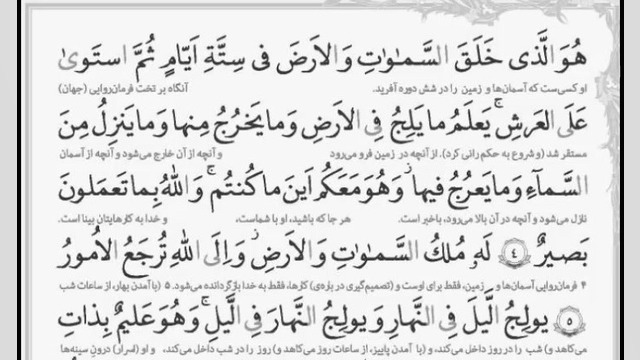 هُوَ الَّذی خَلَقَ السَّمٰوٰتِ وَالاَرضَ فی سِتَّةِ اَیّامٍ ثُمَّ استَویٰ
او کسی‌ست که آسمان‌ها و زمین را در شش دوره آفرید. آنگاه بر تخت فرمان‌روایی (جهان)
عَلَی العَرشِ ۚ یَعلَمُ ما یَلِجُ فِی الاَرضِ وَ ما یَخرُجُ مِنها وَ ما یَنزِلُ مِنَ
مستقر شد (و شروع به حکم رانی کرد). از آنچه در زمین فرو می‌رود و آنچه از آن خارج می‌شود و آنچه از آسمان
السَّماءِ وَ ما یَعرُجُ فیها ۖ وَ هُوَ مَعَکُم اَینَ ما کُنتُم ۚ وَاللّٰهُ بِما تَعمَلونَ
نازل می‌شود و آنچه در آن بالا می‌رود، باخبر است. هر جا که باشید، او با شماست، و خدا به کارهایتان بینا است.
بَصیرٌ ٤ لَهٗ مُلکُ السَّمٰوٰتِ وَالاَرضِ ۚ وَ اِلَی اللّٰهِ تُرجَعُ الاُمورُ
۴ فرمان‌روایی آسمان‌ها و زمین، فقط برای اوست و (تصمیم‌گیری در باره‌ی) کارها، فقط به خدا بازگردانده می‌شود. ۵ (با آمدن بهار، از ساعات شب
٥ یولِجُ الَّیلَ فِی النَّهارِ وَ یولِجُ النَّهارَ فِی الَّیلِ ۚ وَ هُوَ عَلیمٌ بِذاتِ
می‌کاهد و) شب را در روز داخل می‌کند، و (با آمدن پاییز، از ساعات روز می‌کاهد و) روز را در شب داخل می‌کند، و او (اسرار) درون سینه‌ها